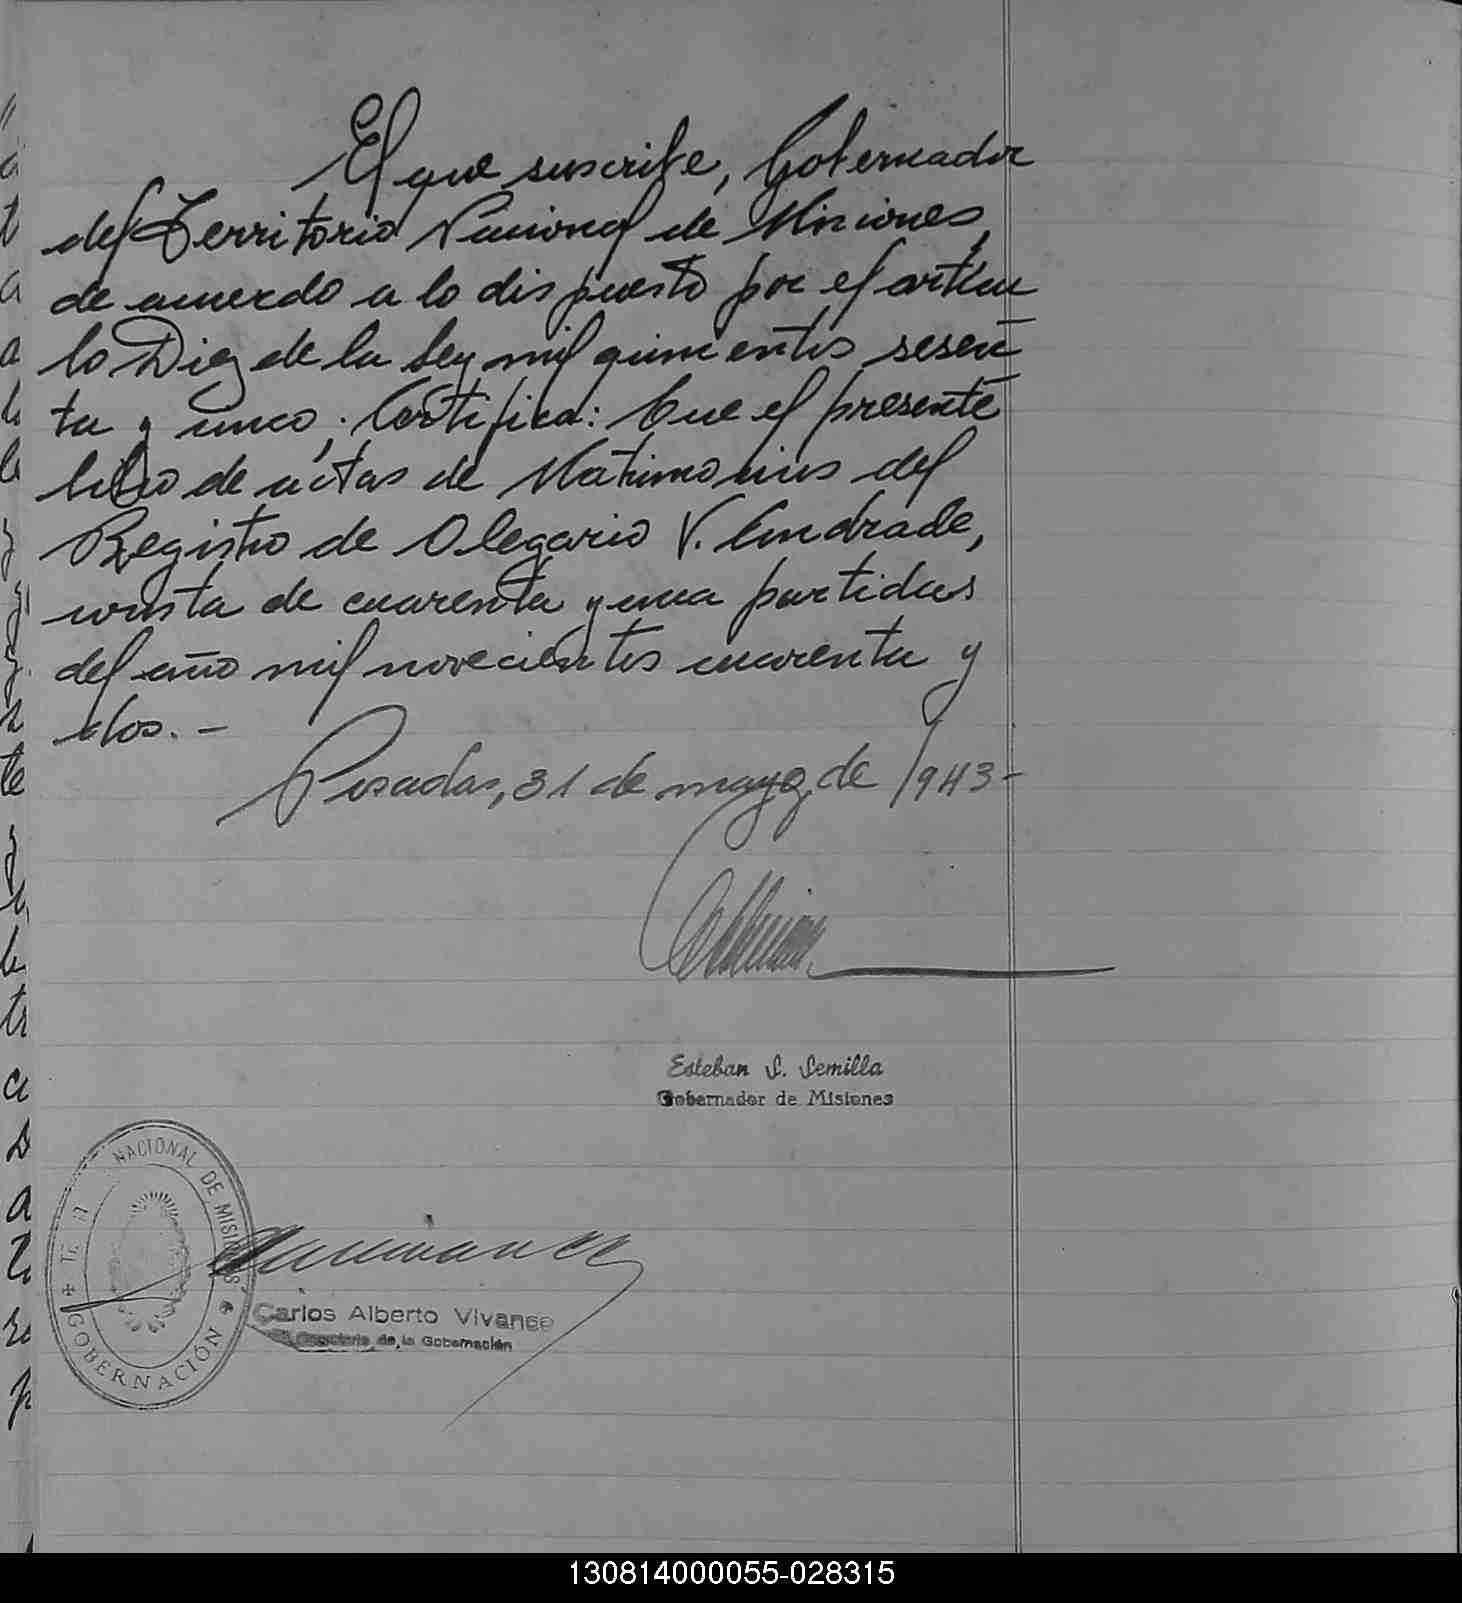 El que suscribe, Gobernador
del Territorio Nacional de Misiones,
de acuerdo a lo dispuesto por el artícu
lo Diez de la Ley mil quinientos sesen
ta y cinco, Certifica: Que el presente
libro de actas de Matrimonios del
Registro de Olegario V. Andrade,
consta de cuarenta y una partidas
del año mil novecientos cuarenta y
dos. -
Posadas, 31 de mayo, de 1943-
Esteban S. Semilla
Gobernador de Misiones
NACIONAL DE MISIONES
GOBERNACIÓN
Carlos Alberto Vivanco
Secretario de la Gobernación
130814000055-028315